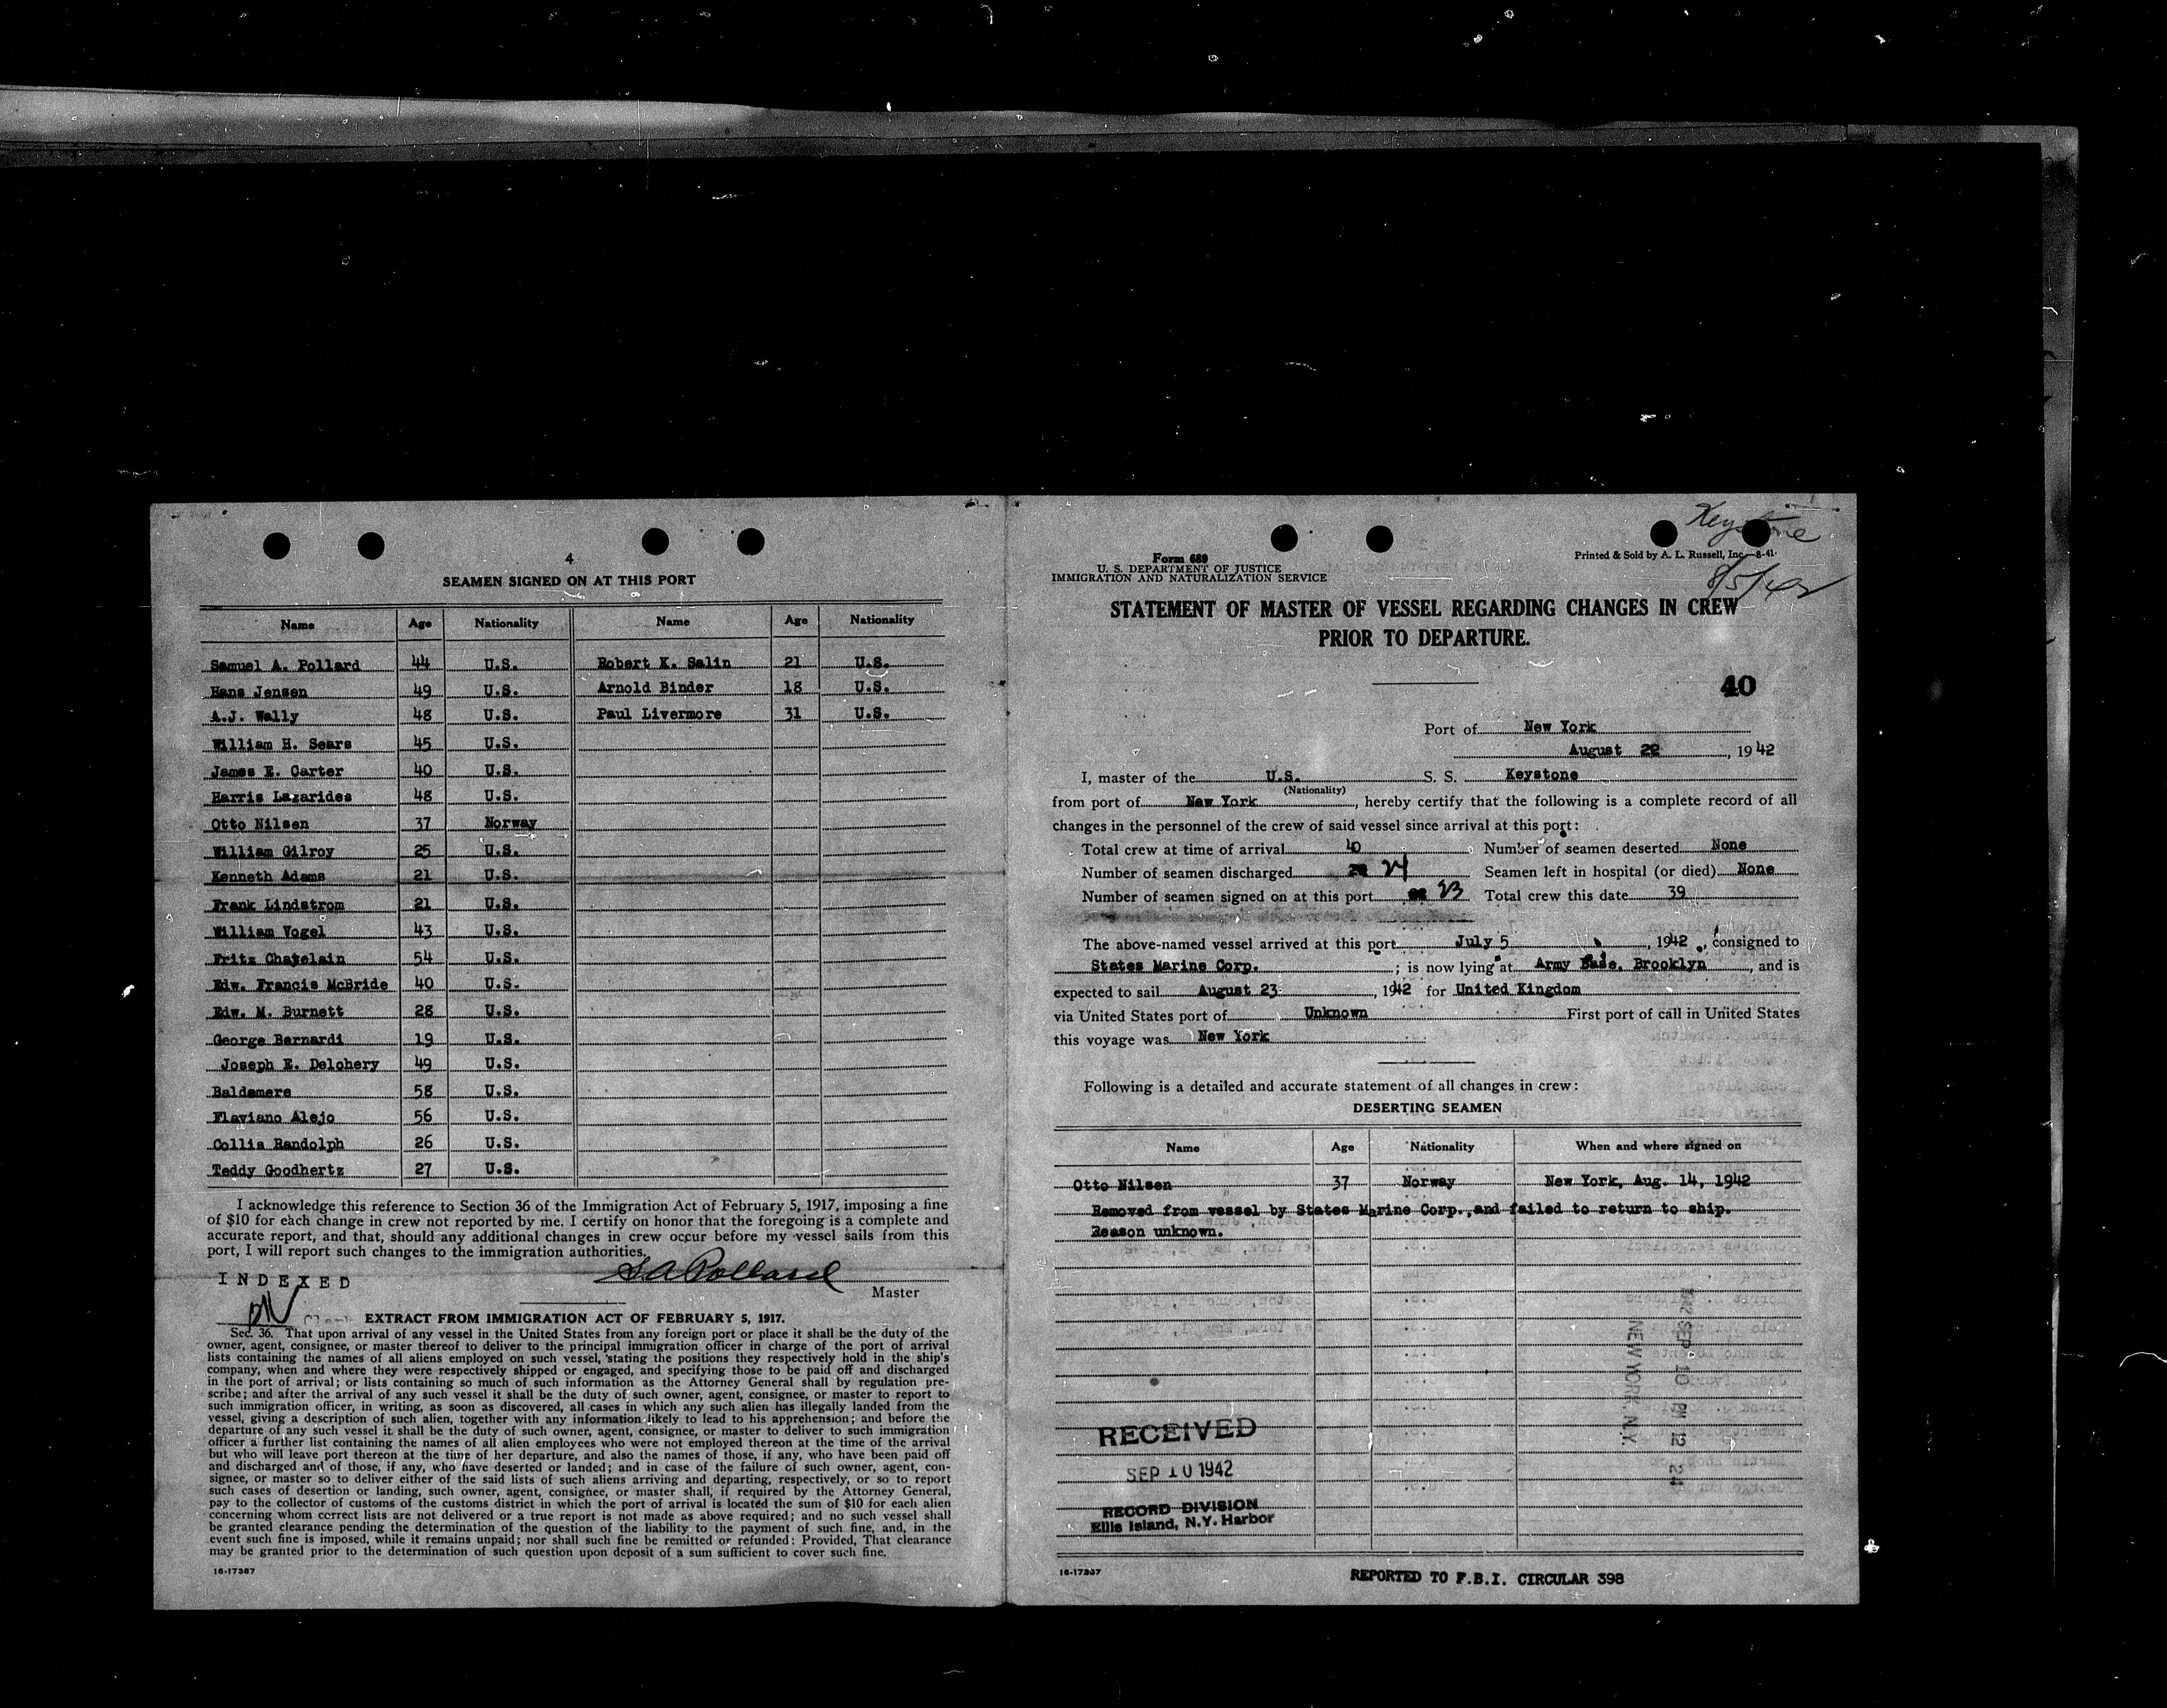 4
SEAMEN SIGNED ON AT THIS PORT
Name Age Nationality Name Age Nationality
Samuel A. Pollard 44 U.S. Robert K. Salin 21 U.S.
Hans Jensen 49 U.S. Arnold Binder 18 U.S.
A.J. Wally 48 U.S. Paul Livermore 31 U.S.
William H. Sears 45 U.S.
James E. Carter 40 U.S.
Harris Lazarides 48 U.S.
Otto Nilsen 37 Norway
William Gilroy 25 U.S.
Kenneth Adams 21 U.S.
Frank Lindstrom 21 U.S.
William Vogel 43 U.S.
Fritz Chatelain 54 U.S.
Edw. Francis McBride 40 U.S.
Edw. M. Burnett 28 U.S.
George Bernardi 19 U.S.
Joseph E. Delohery 49 U.S.
Baldemere 58 U.S.
Flaviano Alejo 56 U.S.
Collis Randolph 26 U.S.
Teddy Goodhertz 27 U.S.
I acknowledge this reference to Section 36 of the Immigration Act of February 5, 1917, imposing a fine
of $10 for each change in crew not reported by me. I certify on honor that the foregoing is a complete and
accurate report, and that, should any additional changes in crew occur before my vessel sails from this
port, I will report such changes to the immigration authorities.
INDEXED
S A Pollard
Master
EXTRACT FROM IMMIGRATION ACT OF FEBRUARY 5, 1917.
Sec. 36. That upon arrival of any vessel in the United States from any foreign port or place it shall be the duty of the
owner, agent, consignee, or master thereof to deliver to the principal immigration officer in charge of the port of arrival
lists containing the names of all aliens employed on such vessel, stating the positions they respectively hold in the ship's
company, when and where they were respectively shipped or engaged, and specifying those to be paid off and discharged
in the port of arrival; or lists containing so much of such information as the Attorney General shall by regulation pre-
scribe; and after the arrival of any such vessel it shall be the duty of such owner, agent, consignee, or master to report to
such immigration officer, in writing, as soon as discovered, all cases in which any such alien has illegally landed from the
vessel, giving a description of such alien, together with any information likely to lead to his apprehension; and before the
departure of any such vessel it shall be the duty of such owner, agent, consignee, or master to deliver to such immigration
officer a further list containing the names of all alien employees who were not employed thereon at the time of the arrival
but who will leave port thereon at the time of her departure, and also the names of those, if any, who have been paid off
and discharged and of those, if any, who have deserted or landed; and in case of the failure of such owner, agent, con-
signee, or master so to deliver either of the said lists of such aliens arriving and departing, respectively, or so to report
such cases of desertion or landing, such owner, agent, consignee, or master shall, if required by the Attorney General,
pay to the collector of customs of the customs district in which the port of arrival is located the sum of $10 for each alien
concerning whom correct lists are not delivered or a true report is not made as above required; and no such vessel shall
be granted clearance pending the determination of the question of the liability to the payment of such fine, and, in the
event such fine is imposed, while it remains unpaid; nor shall such fine be remitted or refunded: Provided, That clearance
may be granted prior to the determination of such question upon deposit of a sum sufficient to cover such fine.
16-17387
Keystone
Form 689
U. S. DEPARTMENT OF JUSTICE
IMMIGRATION AND NATURALIZATION SERVICE
Printed & Sold by A. L. Russell, Inc.—8-41
8/5/42
STATEMENT OF MASTER OF VESSEL REGARDING CHANGES IN CREW
PRIOR TO DEPARTURE.
40
Port of New York
August 22, 1942
I, master of the U.S. S. S. Keystone
(Nationality)
from port of New York, hereby certify that the following is a complete record of all
changes in the personnel of the crew of said vessel since arrival at this port:
Total crew at time of arrival 40 Number of seamen deserted None
Number of seamen discharged 24 Seamen left in hospital (or died) None
Number of seamen signed on at this port 23 Total crew this date 39
The above-named vessel arrived at this port July 5, 1942, consigned to
States Marine Corp.; is now lying at Army Base, Brooklyn, and is
expected to sail August 23, 1942 for United Kingdom
via United States port of Unknown First port of call in United States
this voyage was New York
Following is a detailed and accurate statement of all changes in crew:
DESERTING SEAMEN
Name Age Nationality When and where signed on
Otto Nilsen 37 Norway New York, Aug. 14, 1942
Removed from vessel by States Marine Corp., and failed to return to ship.
Reason unknown.
1942 SEP 10 PM 12 24
NEW YORK N.Y.
RECEIVED
SEP 10 1942
RECORD DIVISION
Ellis Island, N.Y. Harbor
REPORTED TO F.B.I. CIRCULAR 398